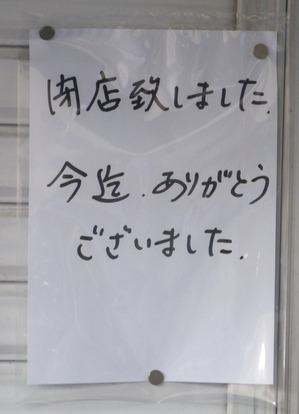 閉店致しました.
今迄.ありがとう
ございました.